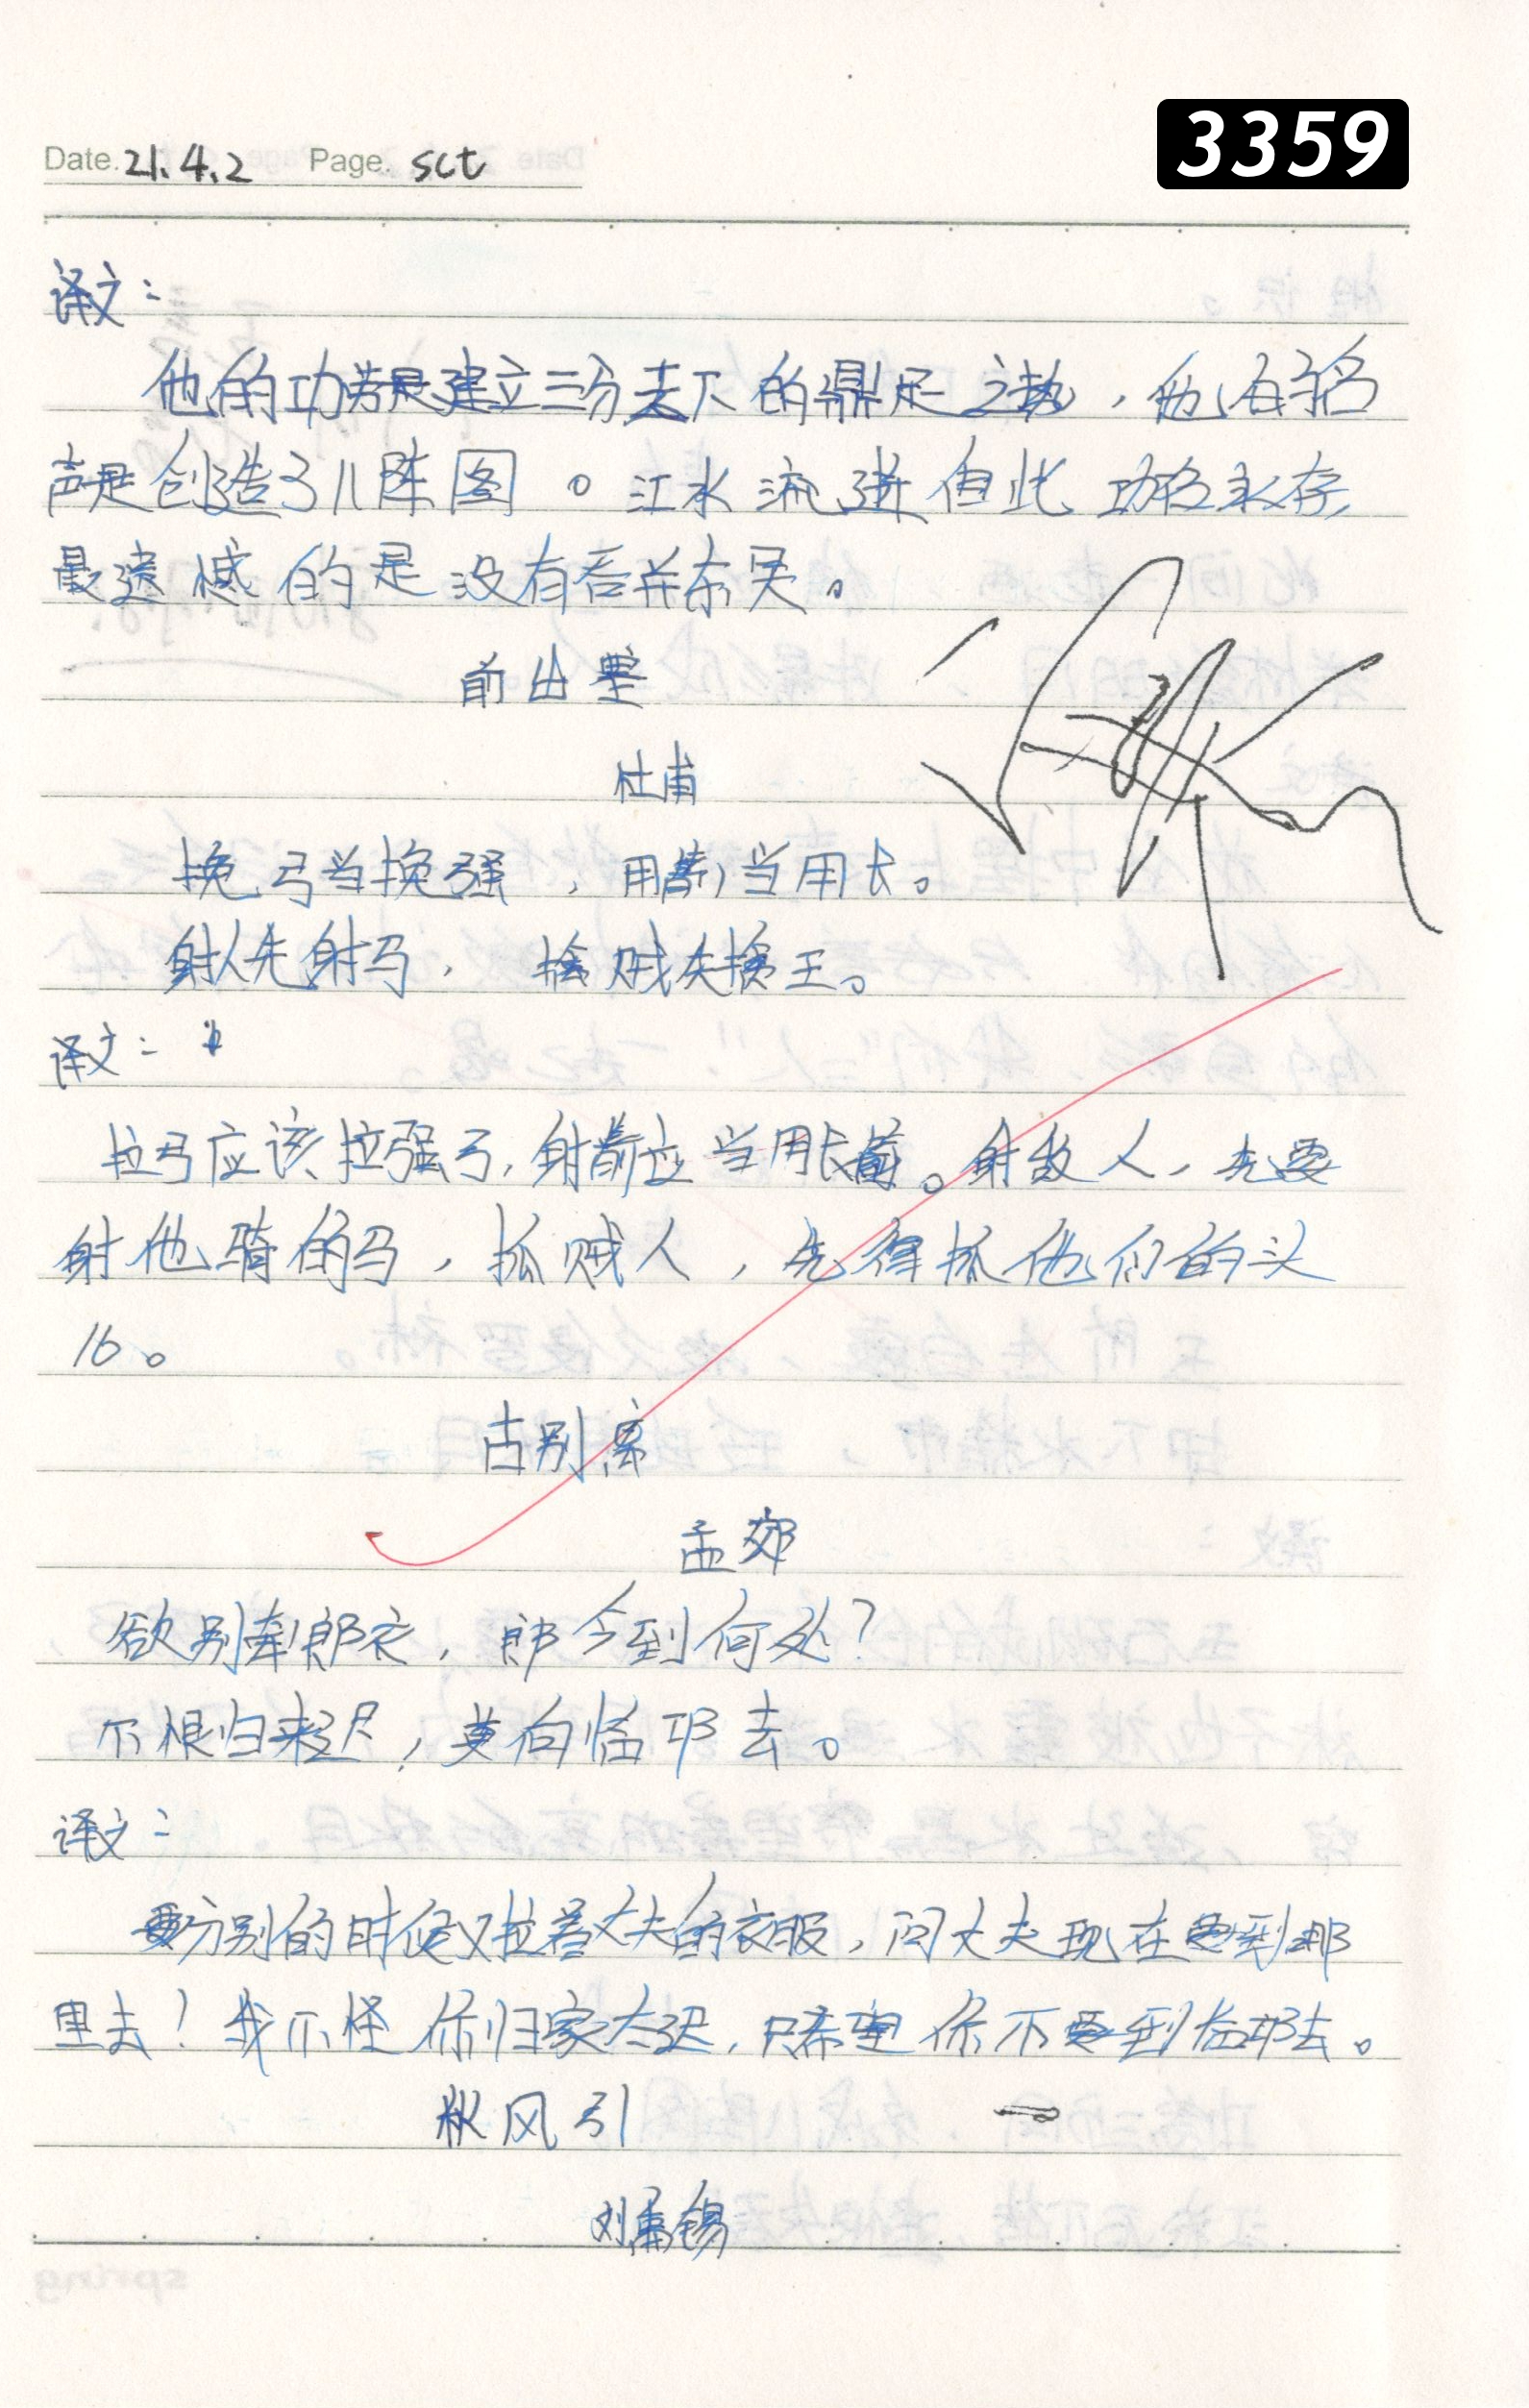 3359
Date. 21.4.2 Page. sct
译文：
他的功劳是建立三分天下的鼎足之势，他的名
声是创造了八阵图。江水流逝但此功名永存，
最遗憾的是没有吞并东吴。
前出塞
杜甫
挽弓当挽强，用箭当用长。
射人先射马，擒贼先擒王。
译文：
拉弓应该拉强弓，射箭应当用长箭。射敌人，先要
射他骑的马，抓贼人，先得抓他们的头
16。
古别离
孟郊
欲别牵郎衣，郎今到何处？
不恨归来迟，莫向临邛去。
译文：
要分别的时候又拉着丈夫的衣服，问丈夫现在要到那
里去！我不怪你归家太迟，只希望你不要到临邛去。
秋风引
刘禹锡